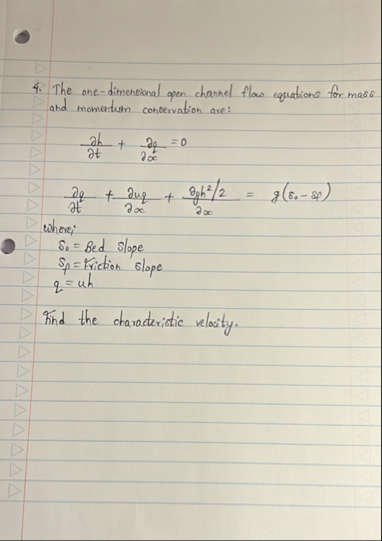 4. The one-dimensional open channel flow equations for mass
and momentum conservation are:
∂h/∂t + ∂q/∂x = 0
∂q/∂t + ∂uq/∂x + ∂gh²/2/∂x = g(s₀ - sf)
where;
S₀ = Bed slope
Sf = Friction slope
q = uh
Find the characteristic velocity.